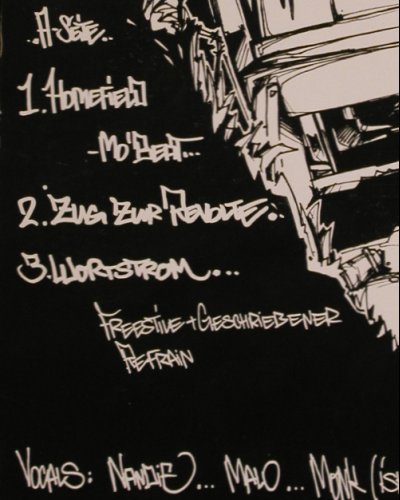 ..A-Seite..
1. Homefield
-Mo'Beat...
2. Zug zur Revolte..
3. Wortstrom...
Freestile + Geschriebener
Refrain
Vocals: Nandie... Malo... Monk (is